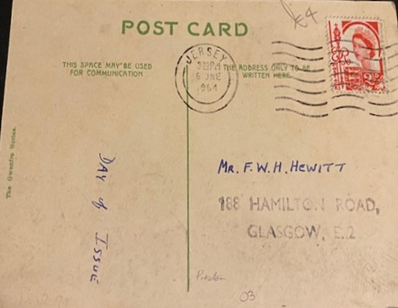 POST CARD
THIS SPACE MAY BE USED
FOR COMMUNICATION
THE ADDRESS ONLY TO BE
WRITTEN HERE.
JERSEY
JNE
1964
DAY of ISSUE
MR. F.W.H. HEWITT
188 HAMILTON ROAD,
GLASGOW, E.2
Preston
03